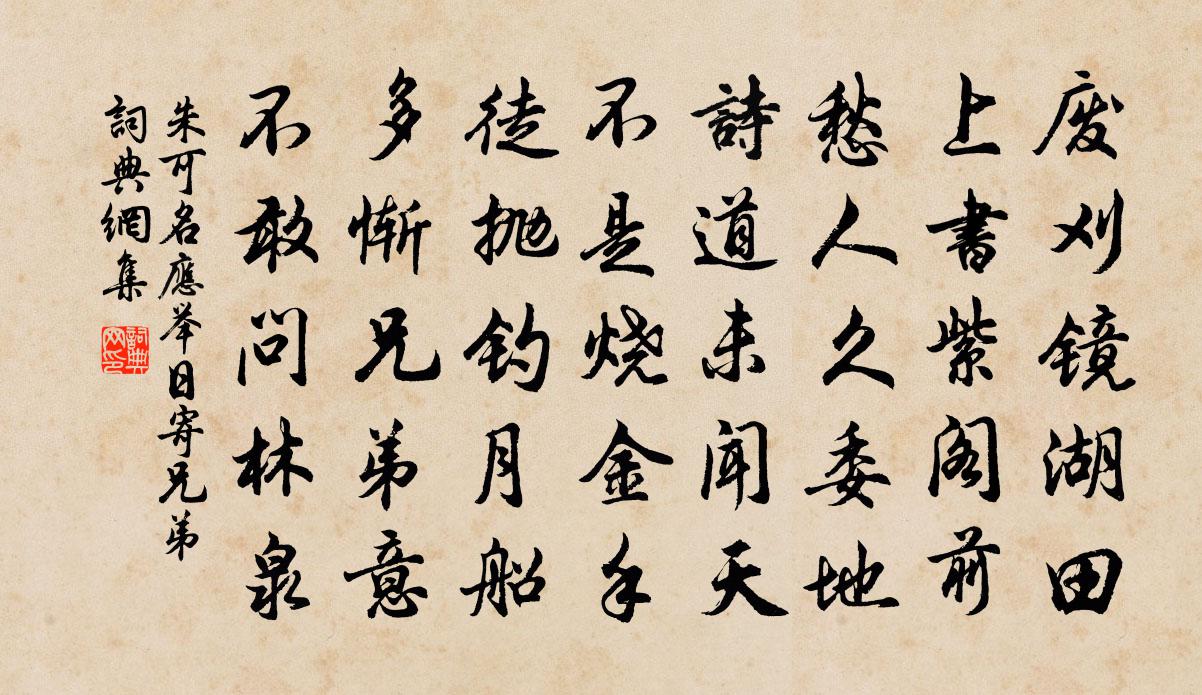 废刈镜湖田
上書紫阁前
愁人久委地
詩道未闻天
不是烧金手
徒抛钓月船
多惭兄弟意
不敢问林泉
朱可名應举日寄兄弟
詞典網集
詞典网印